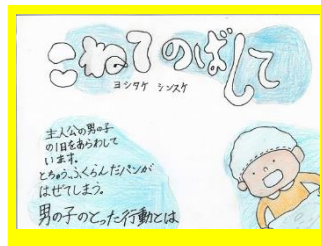 こねてのばして
ヨシタケ シンスケ
主人公の男の子
の1日をあらわして
います。
とちゅう、ふくらんだパンが
はぜてしまう。
男の子のとった行動とは